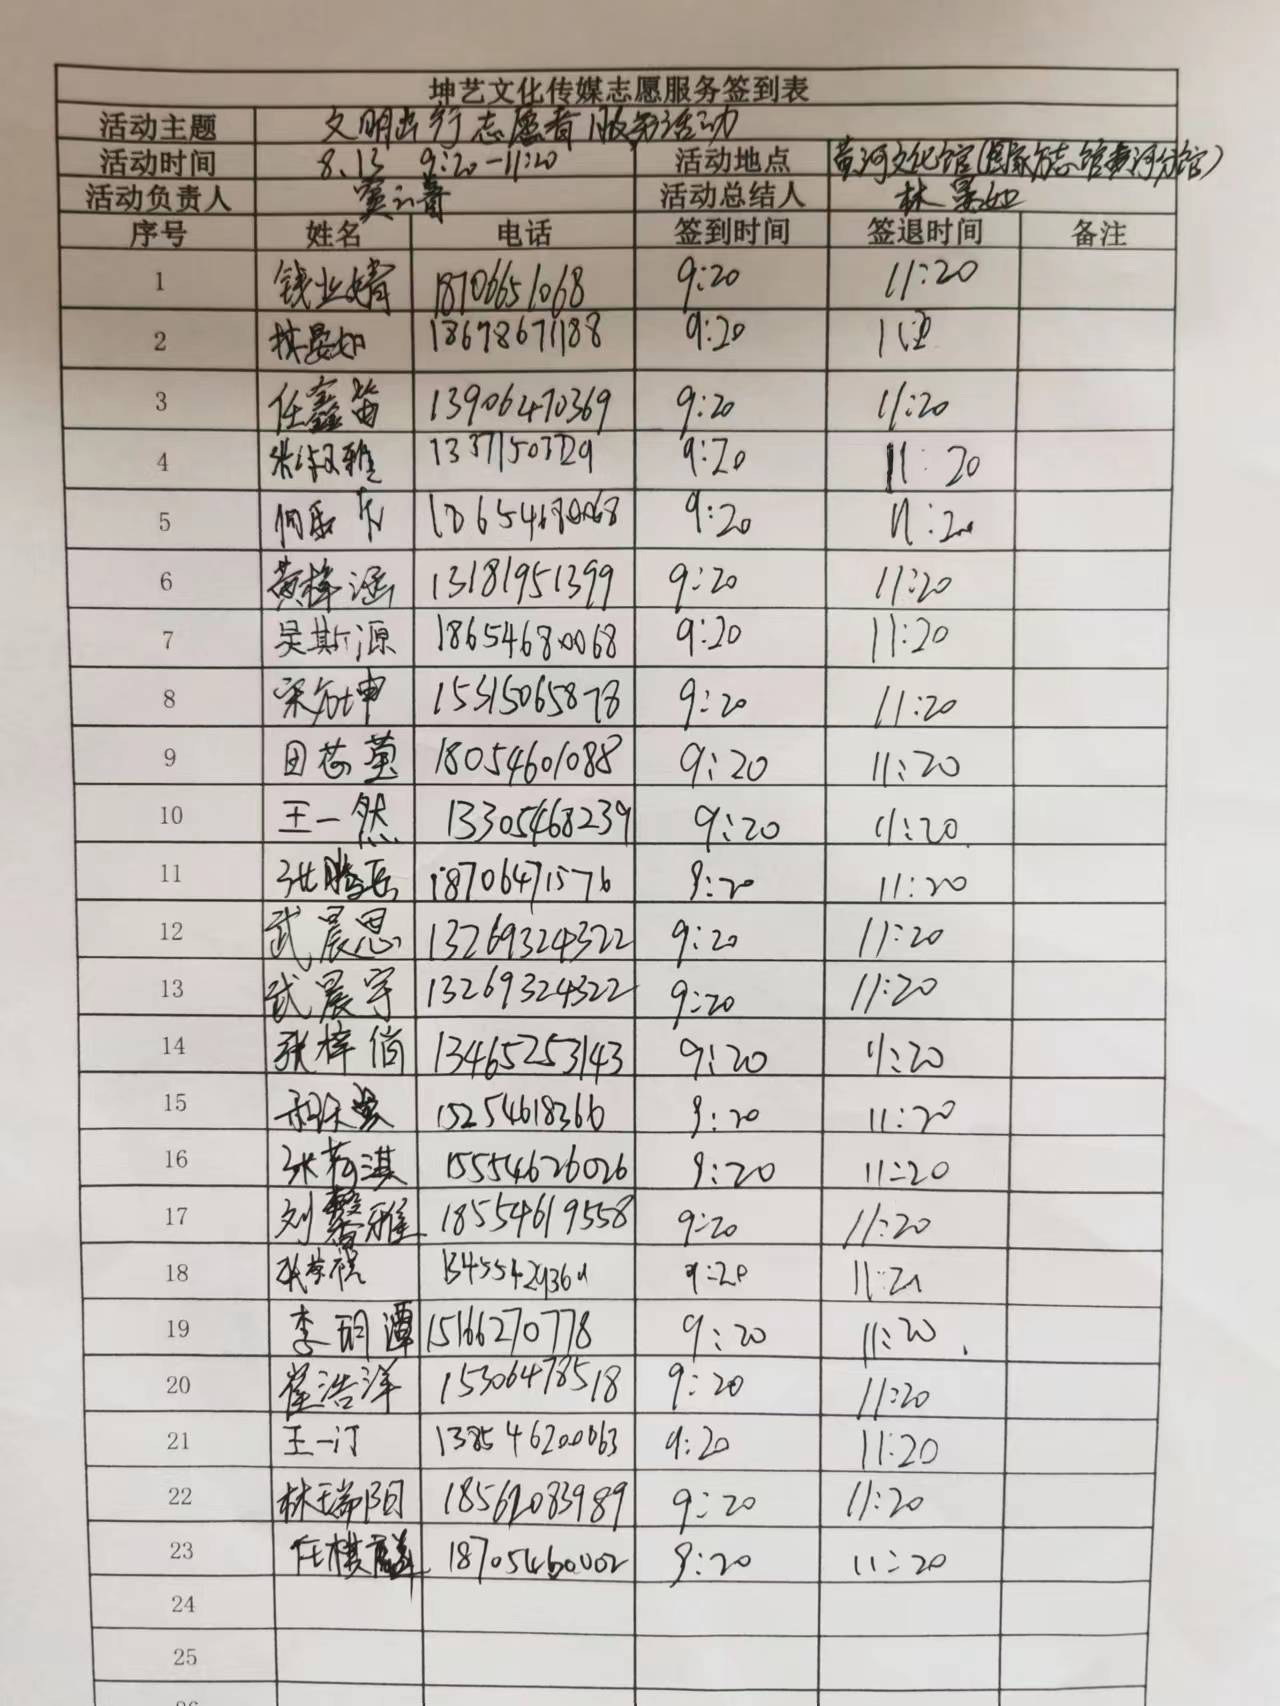 坤艺文化传媒志愿服务签到表
活动主题 文明出行志愿者服务活动
活动时间 8.13 9:20-11:20 活动地点 黄河文化馆(国家方志馆黄河分馆)
活动负责人 活动总结人 林晏如
序号 姓名 电话 签到时间 签退时间 备注
1 钱业婧 18706651068 9:20 11:20
2 林晏如 18678671188 9:20
3 任鑫笛 13906470369 9:20 11:20
4 13371503729 9:20 11:20
5 18654680068 9:20 11:20
6 黄梓涵 13181951399 9:20 11:20
7 吴斯源 18654680068 9:20 11:20
8 15315065878 9:20 11:20
9 18054601088 9:20 11:20
10 王一然 13305468239 9:20 11:20
11 张腾岳 18706471576 9:20 11:20
12 武晨思 13269324322 9:20 11:20
13 武晨宇 13269324322 9:20 11:20
14 张梓俏 13465253143 9:20 11:20
15 15254618366 9:20 11:20
16 张芮淇 15554626026 9:20 11:20
17 刘馨雅 18554619558 9:20 11:20
18 9:20 11:20
19 李明潭 15166270778 9:20 11:20
20 崔浩洋 15306478518 9:20 11:20
21 王一汀 13854620063 9:20 11:20
22 林瑞阳 18562083989 9:20 11:20
23 18705460002 9:20 11:20
24
25